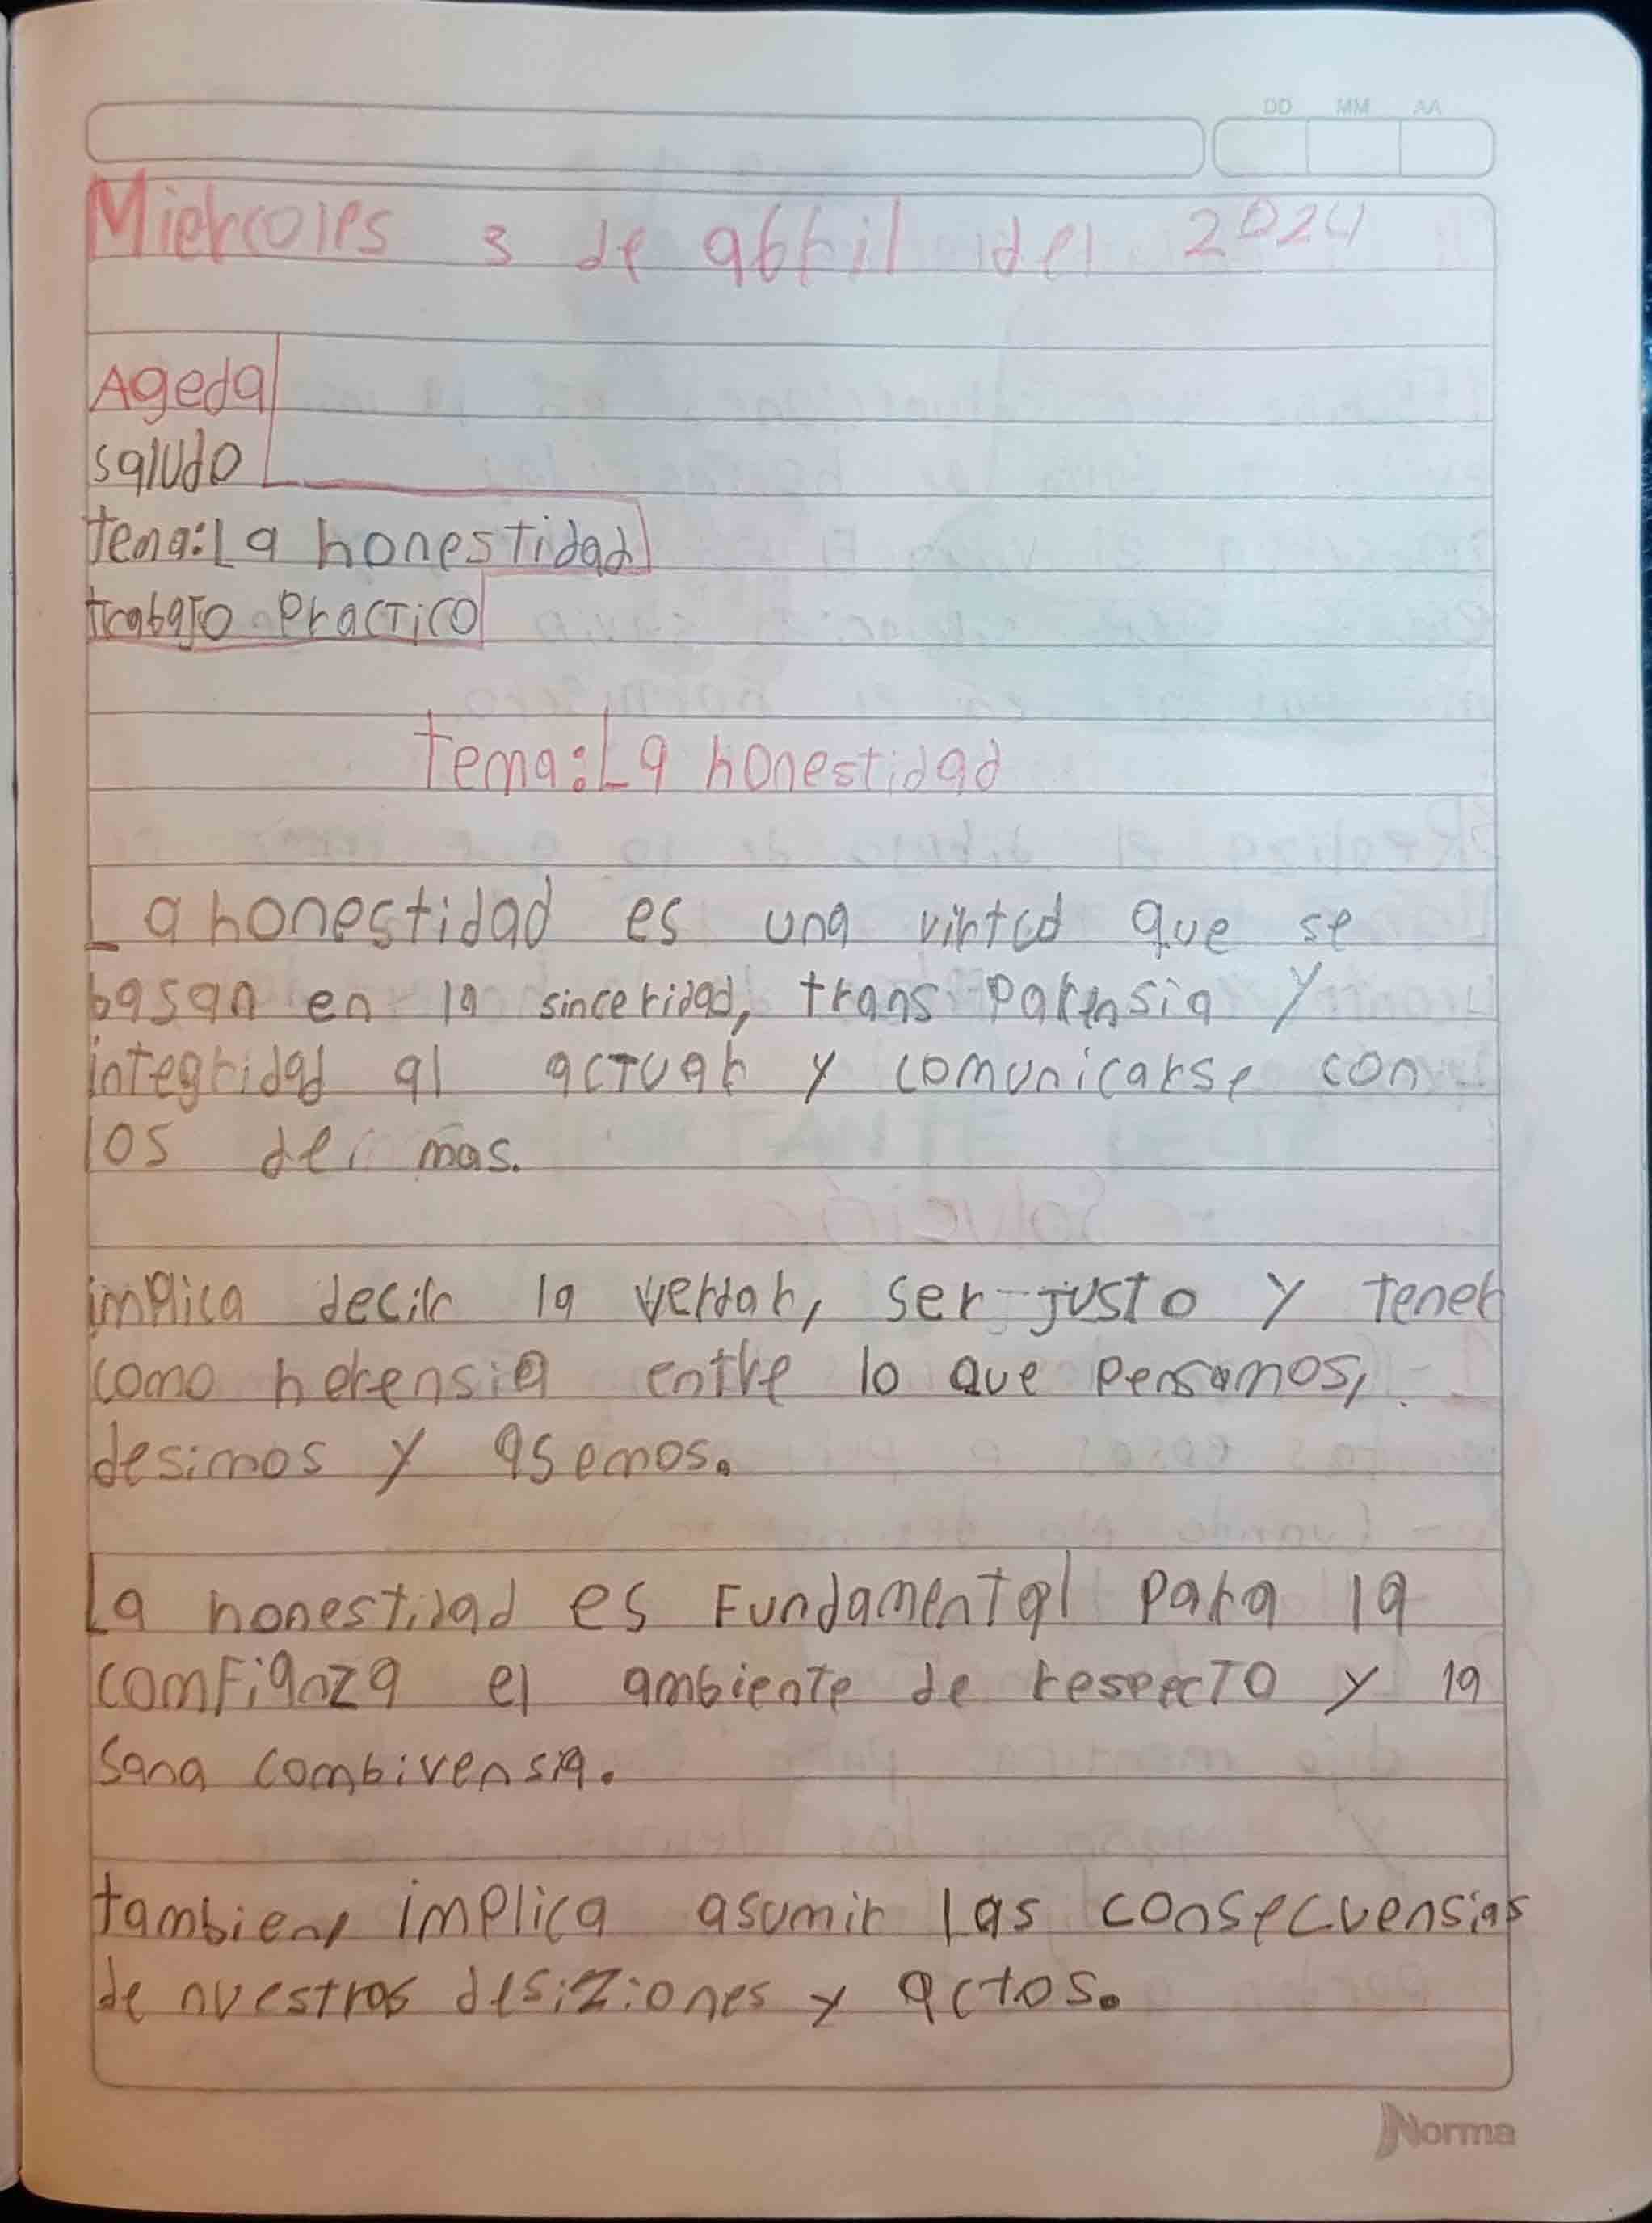 DD MM AA
Miercoles 3 de abril del 2024
Ageda
saludo
tema: La honestidad
trabajo practico
tema: La honestidad
La honestidad es una virtud que se
basan en la sinceridad, trans parensia y
integridad al actuar y comunicarse con
los de mas.
implica decir la verdar, ser justo y tener
como herensia entre lo que pensamos,
desimos y asemos.
La honestidad es Fundamental para la
comFianza el ambiente de respecto y la
sana combivensia.
tambien, implica asumir las consecuensias
de nuestros desiziones y actos.
Norma